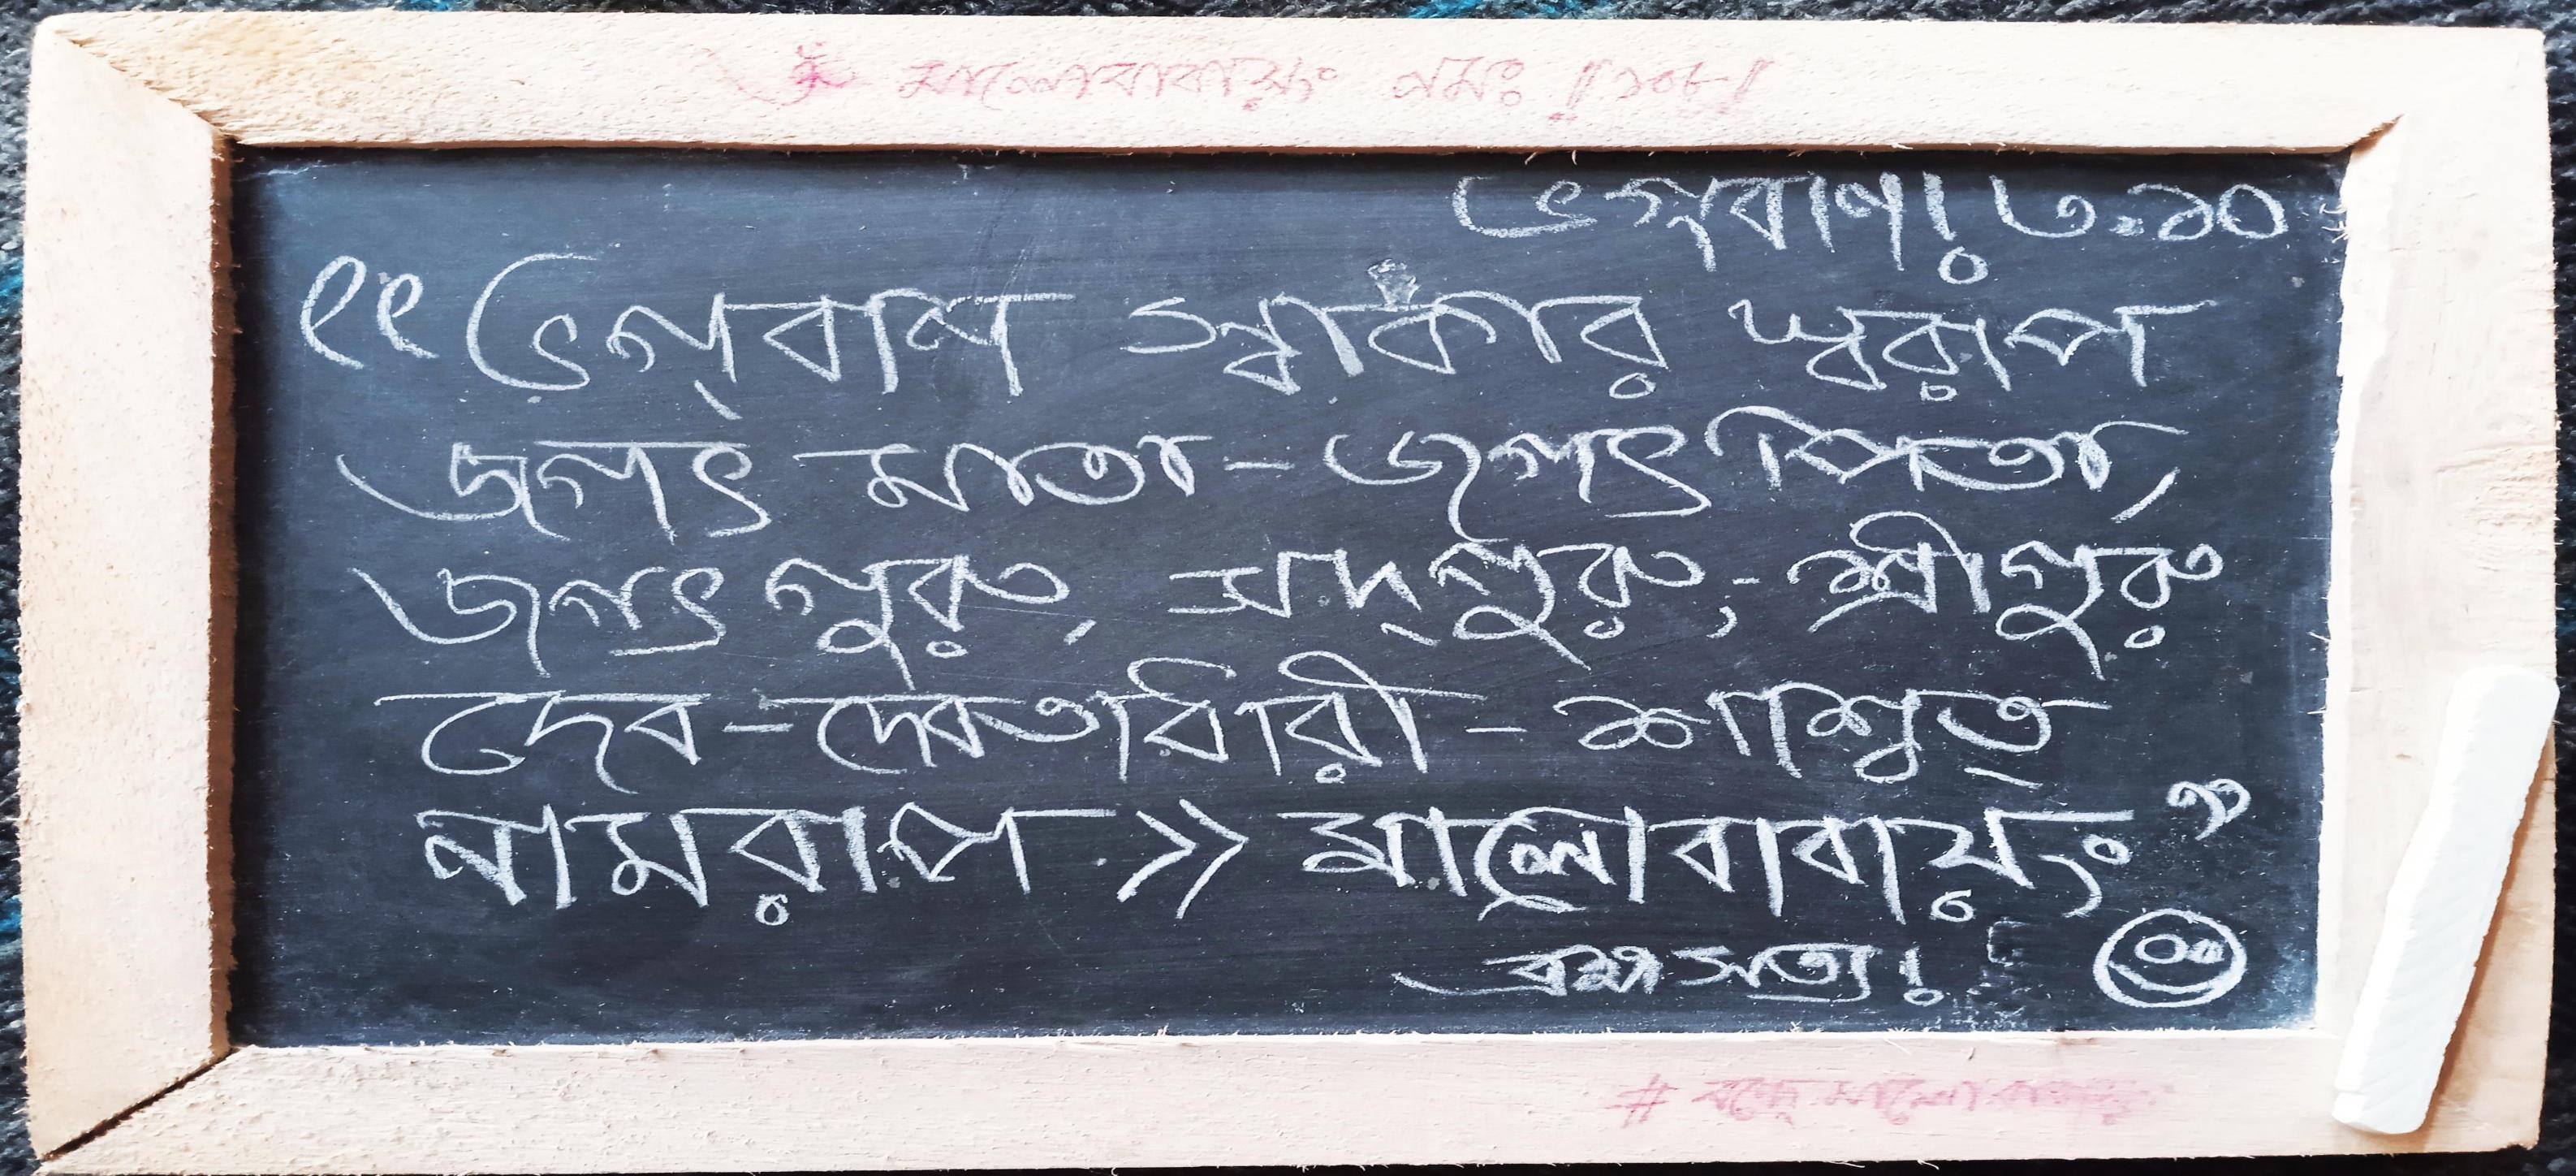 মালোবাবায়ং নমঃ ॥১০৮॥
ভগবান! ৩:১০
“ভগ্‌বান স্বাকার স্বরূপ
জগৎ মাতা - জগৎ পিতা,
জগৎ গুরু, সদ্‌গুরু, - শ্রীগুরু
দেব - দেবতাধারী - শাশ্বত্
নামরূপ >> মালোবাবায়ং”
ব্রহ্ম সত্য!